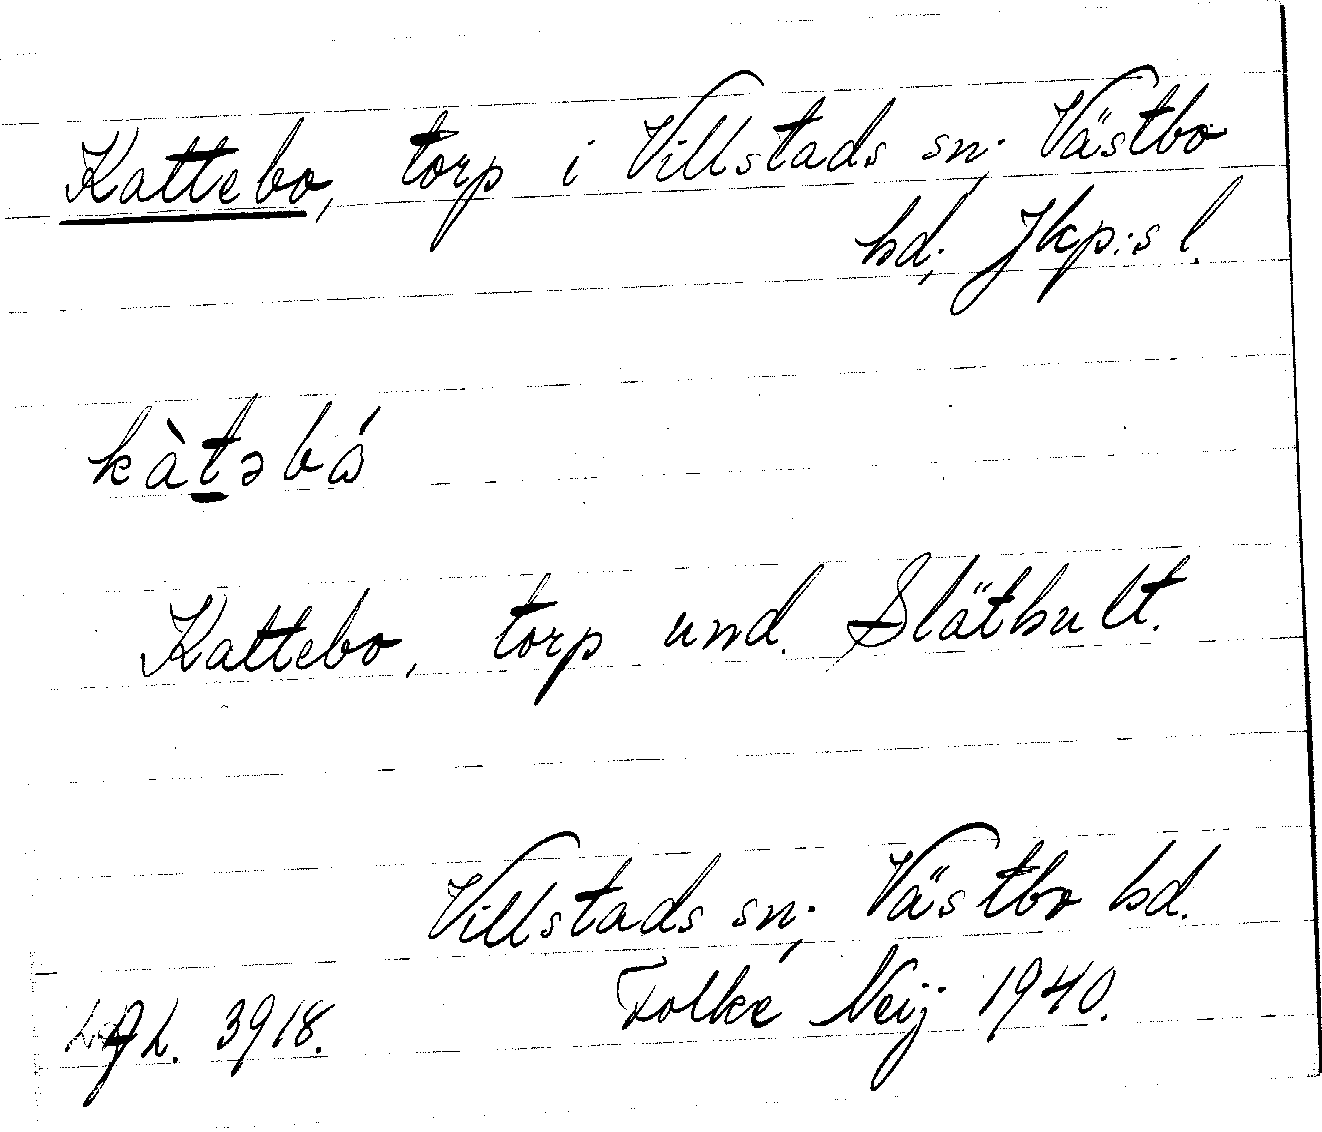 Kattebo, torp i Villstads sn; Västbo
hd; Jkp:s l.
kàt̲əbɷ́
Kattebo, torp und. Släthult.
Villstads sn; Västbo hd.
Folke Neij 1940.
3918.